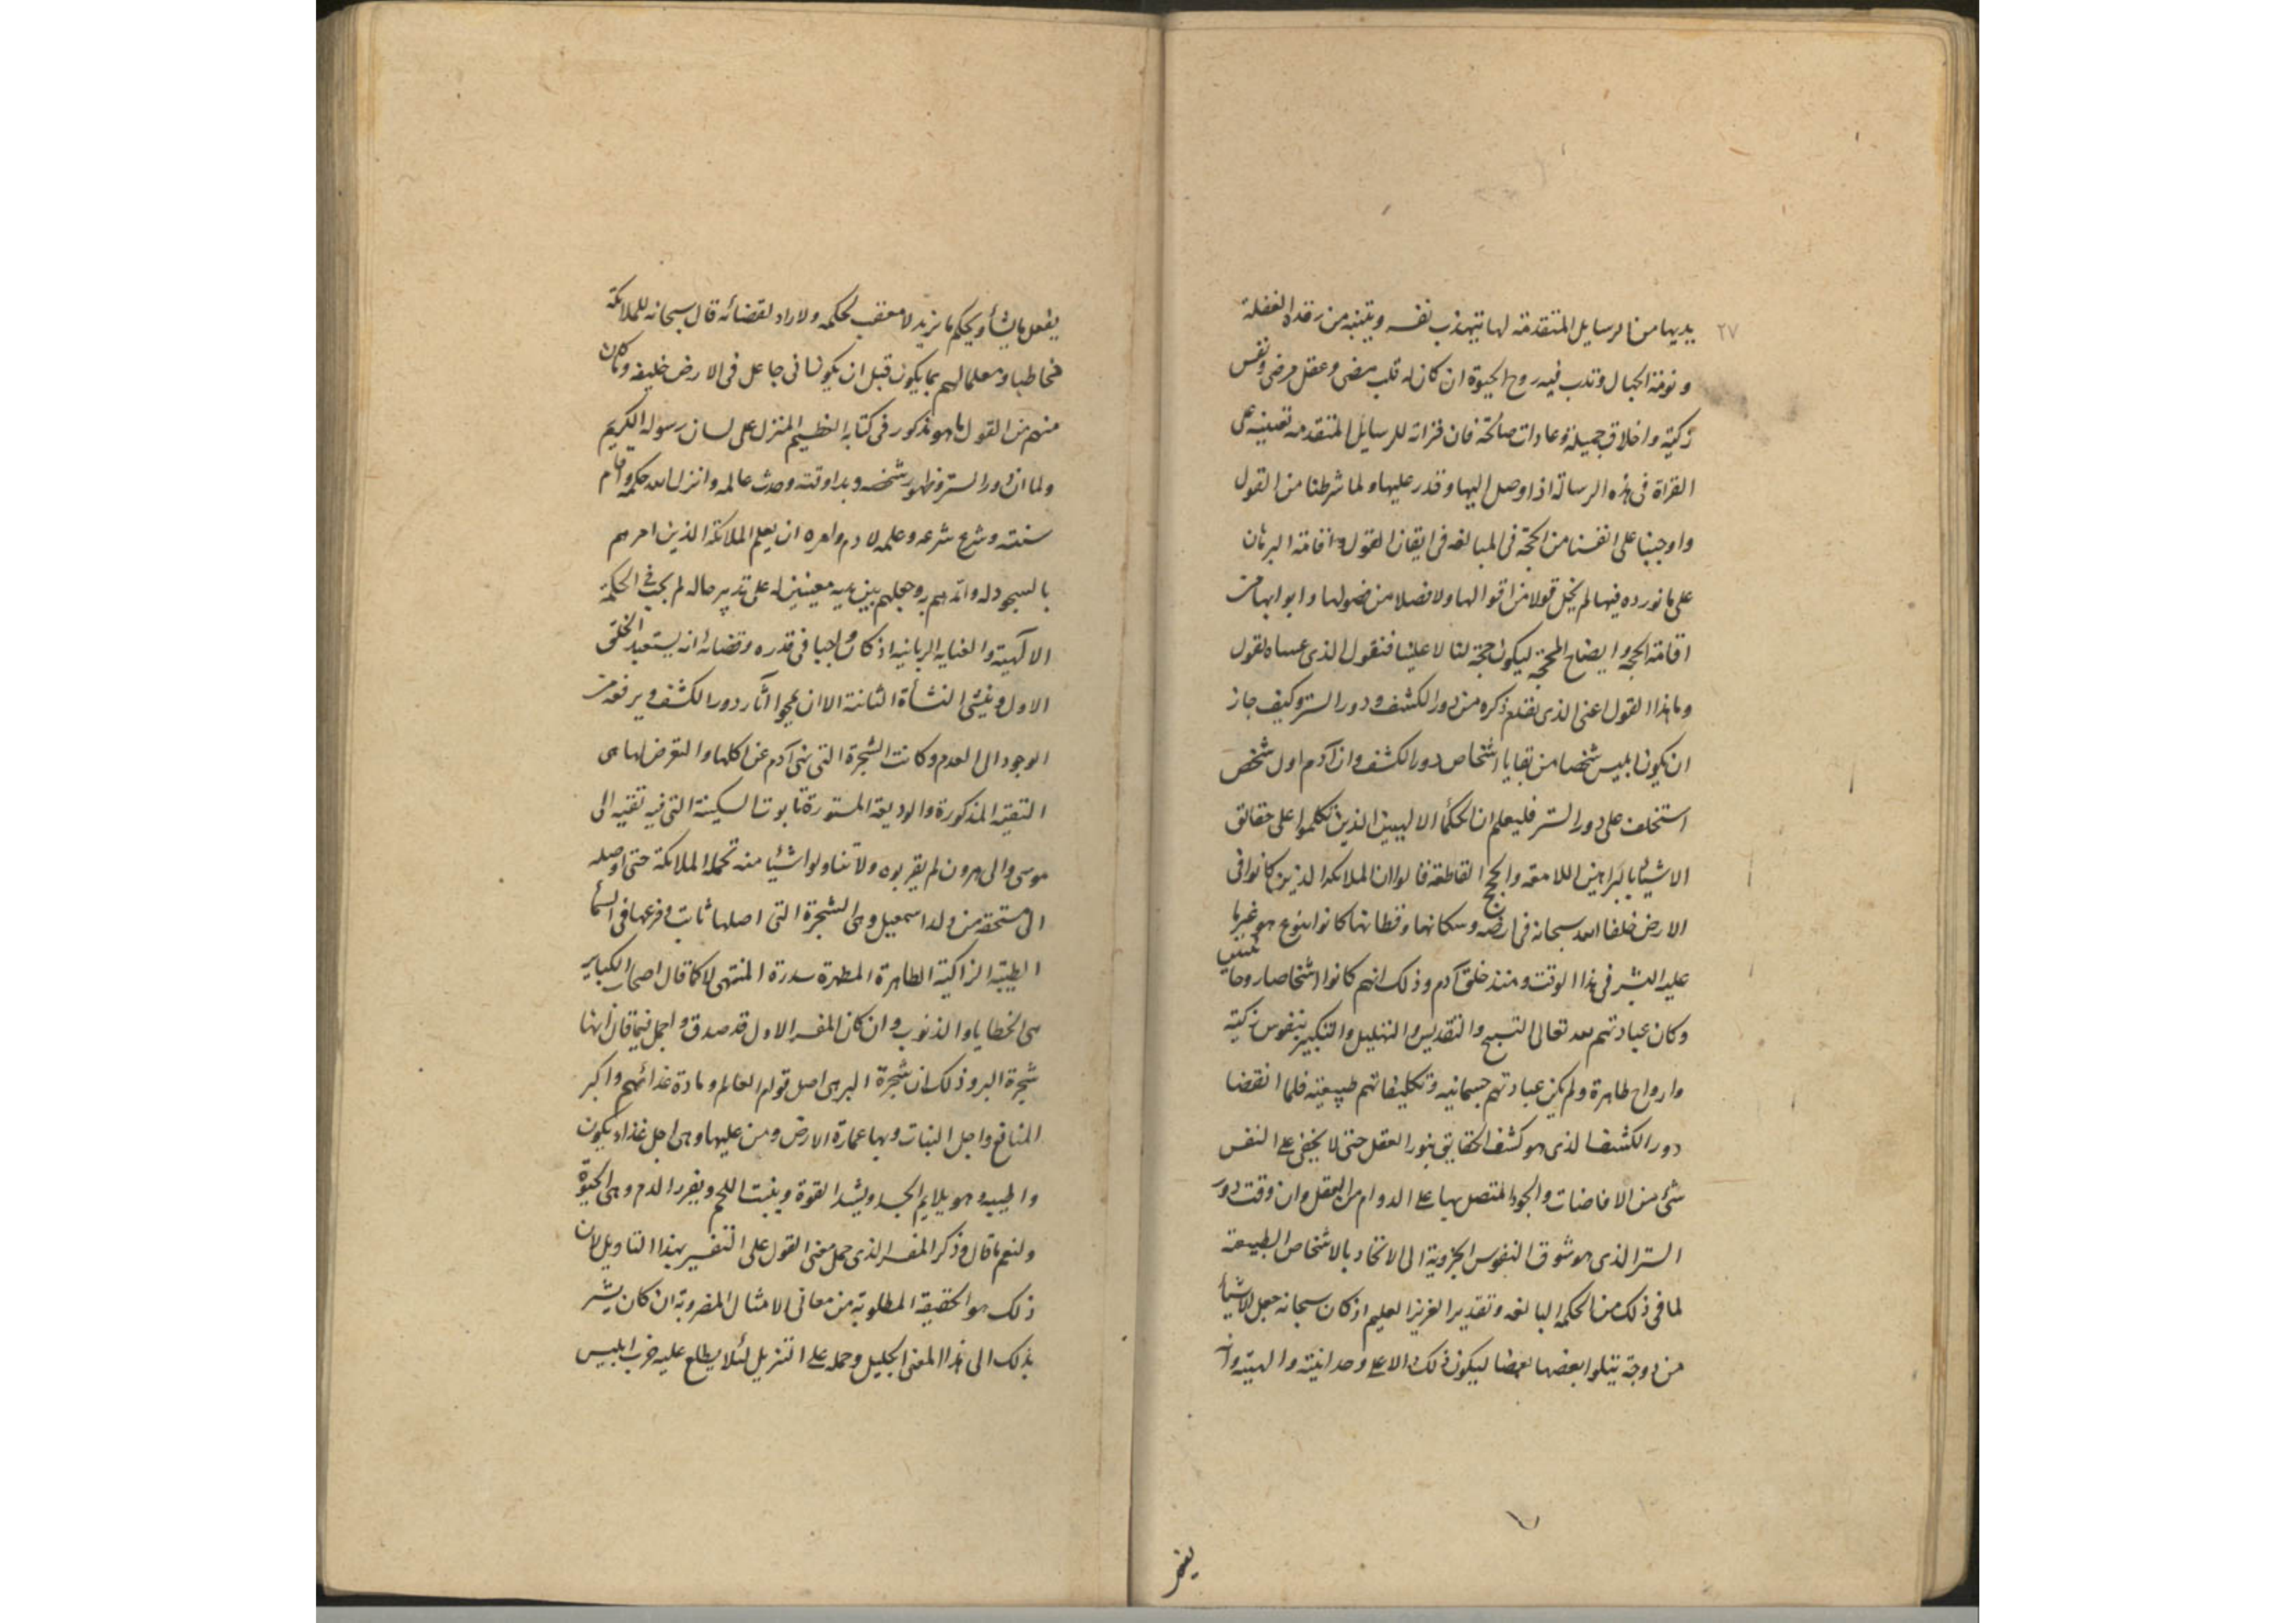 ٢٧
يديها من الرسايل المتقدمة لها تتهذب نفسه وينتبه من رقدة الغفلة
و نومة الجهال وتدب فيه روح الحيوة ان كان له قلب مضى وعقل مرضى ونفس
زكية واخلاق جميلة وعادات صالحة فان قراته للرسايل المتقدمة تعينه على
القراة فى هذه الرسالة اذا وصل اليها وقدر عليها ولما شرطنا من القول
واوجبنا على انفسنا من الحجة فى المبالغه فى ايقان القول و اقامة البرهان
على ما نورده فيها لم يخل قولا من اقوالها ولا فصلا من فصولها و ابوابها من
اقامة الحجة وايضاح المحجة ليكون حجة لنا لا علينا فنقول الذى عساه تقول
وما هذا القول اعنى الذى تقدم ذكره من دور الكشف ودور الستر وكيف جاز
ان يكون ابليس شخصا من بقايا اشخاص دور الكشف وان آدم اول شخص
استخلف على دور الستر فليعلم ان الحكمأ الالهيين الذين تكلموا على حقائق
الاشيأ بالبراهين اللامعه والحجج القاطعة قالوا ان الملائكه الذين كانوا فى
الارض خلفا الله سبحانه فى ارضه وسكانها وقطانها كانوا بنوع هو غير ما
عليه البشر فى هذا الوقت ومنذ خلق آدم وذلك انهم كانوا اشخاصا روحانيين
وكان عبادتهم لله تعالى التسبيح والتقديس والتهليل والتكبير بنفوس زكية
وارواح طاهرة ولم يكن عبادتهم جسمانيه وتكليفاتهم طبيعية فلما انقضا
دور الكشف الذى هو كشف الحقايق بنور العقل حتى لا يخفى على النفس
شئ من الافاضات والجود المتصل بها على الدوام من العقل وان وقت دور
الستر الذى هو شوق النفوس الجزوية الى الاتحاد بالاشخاص الطبيعة
لما فى ذلك من الحكمه البالغه وتقدير العزيز العليم اذ كان سبحانه جعل الاشيأ
مزدوجة يتلوا بعضها بعضا ليكون ذلك دالا على وحدانيته والهيته وانه
يفعل ما يشأ ويحكم ما يريد لا معقب لحكمه ولا راد لقضائه قال سبحانه للملائكة
مخاطبا ومعلما لهم بما يكون قبل ان يكون انى جاعل فى الارض خليفه وكان
منهم من القول ما هو مذكور فى كتابه العظيم المنزل على لسان رسوله الكريم
ولما ان دور الستر وظهور شخصه وبدا وقته وحدث عالمه وانزل الله حكمه واقام
سنته وشرع شرعه وعلمه لادم وامره ان يعلم الملائكة الذين امرهم
بالسجود له وايدهم به وجعلهم بين يديه معينين له على تدبير حاله لم يجب فى الحكمة
الالهية والعنايه الربانيه اذ كان واجبا فى قدره وقضائه انه يستعيد الخلق
الاول وينشئ النشأة الثانية الا ان يمحوا آثار دور الكشف ويرفعه من
الوجود الى العدم وكانت الشجرة التى نهى آدم عن اكلها والتعرض لها هى
التقية المذكورة والوديعة المستورة تابوت السكينة التى فيه بقيه الى
موسى والى هرون لم يقربوه ولا تناولوا شيئا منه تحمله الملائكة حتى اوصله
الى مستحقه من ولد اسمعيل وهى الشجرة التى اصلها ثابت وفرعها فى السمأ
الطيبة الزاكية الطاهرة المطهرة سدرة المنتهى لا كما قال اصحاب الكباير
هى الخطايا والذنوب وان كان المفسر الاول قد صدق و اجمل فيما قال انها
شجرة البر وذلك ان شجرة البر هى اصل قوام العالم ومادة غذائهم واكبر
المنافع واجل النبات وبها عمارة الارض ومن عليها وهى اجل غذاء يكون
واطيبه وهو يلايم الجسد ويشد القوة وينبت اللحم ويغزر الدم وهى الحيوة
ولنعم ما قال وذكر المفسر الذى حمل معنى القول على التفسير بهذا التاويل لان
ذلك هو الحقيقة المطلوبة من معانى الامثال المضروبة ان كان يشير
بذلك الى هذا المعنى الجليل وحمله على التنزيل لئلا يطلع عليه حزب ابليس